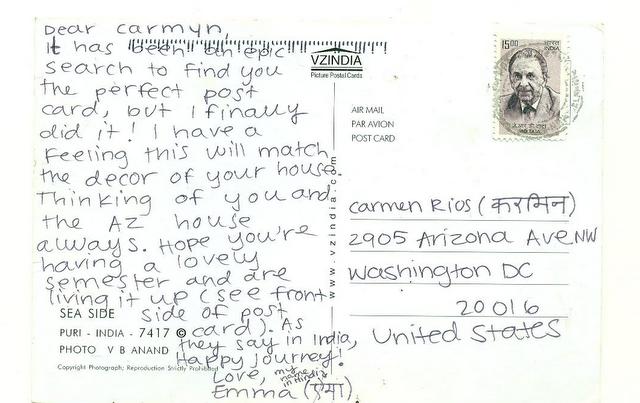 Dear Carmyn,
It has been an epic
search to find you
the perfect post
card, but I finally
did it! I have a
feeling this will match
the decor of your house.
Thinking of you and
the AZ house
always. Hope you're
having a lovely
semester and are
living it up (see front
side of post
card). As
they say in India,
Happy Journey!
Love,
my
name
in Hindi
Emma (एमा)
SEA SIDE
PURI - INDIA - 7417 ©
PHOTO V B ANAND
Copyright Photograph; Reproduction Strictly Prohibited
VZINDIA
Picture Postal Cards
www.vzindia.com
AIR MAIL
PAR AVION
POST CARD
15.00
भारत
INDIA
Carmen Rios (करमिन)
2905 Arizona Ave NW
Washington DC
20016
United States